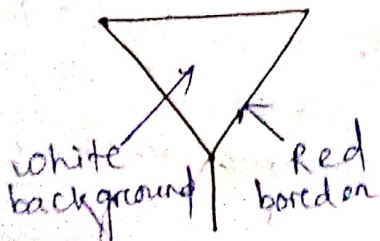 white
background
Red
boredon